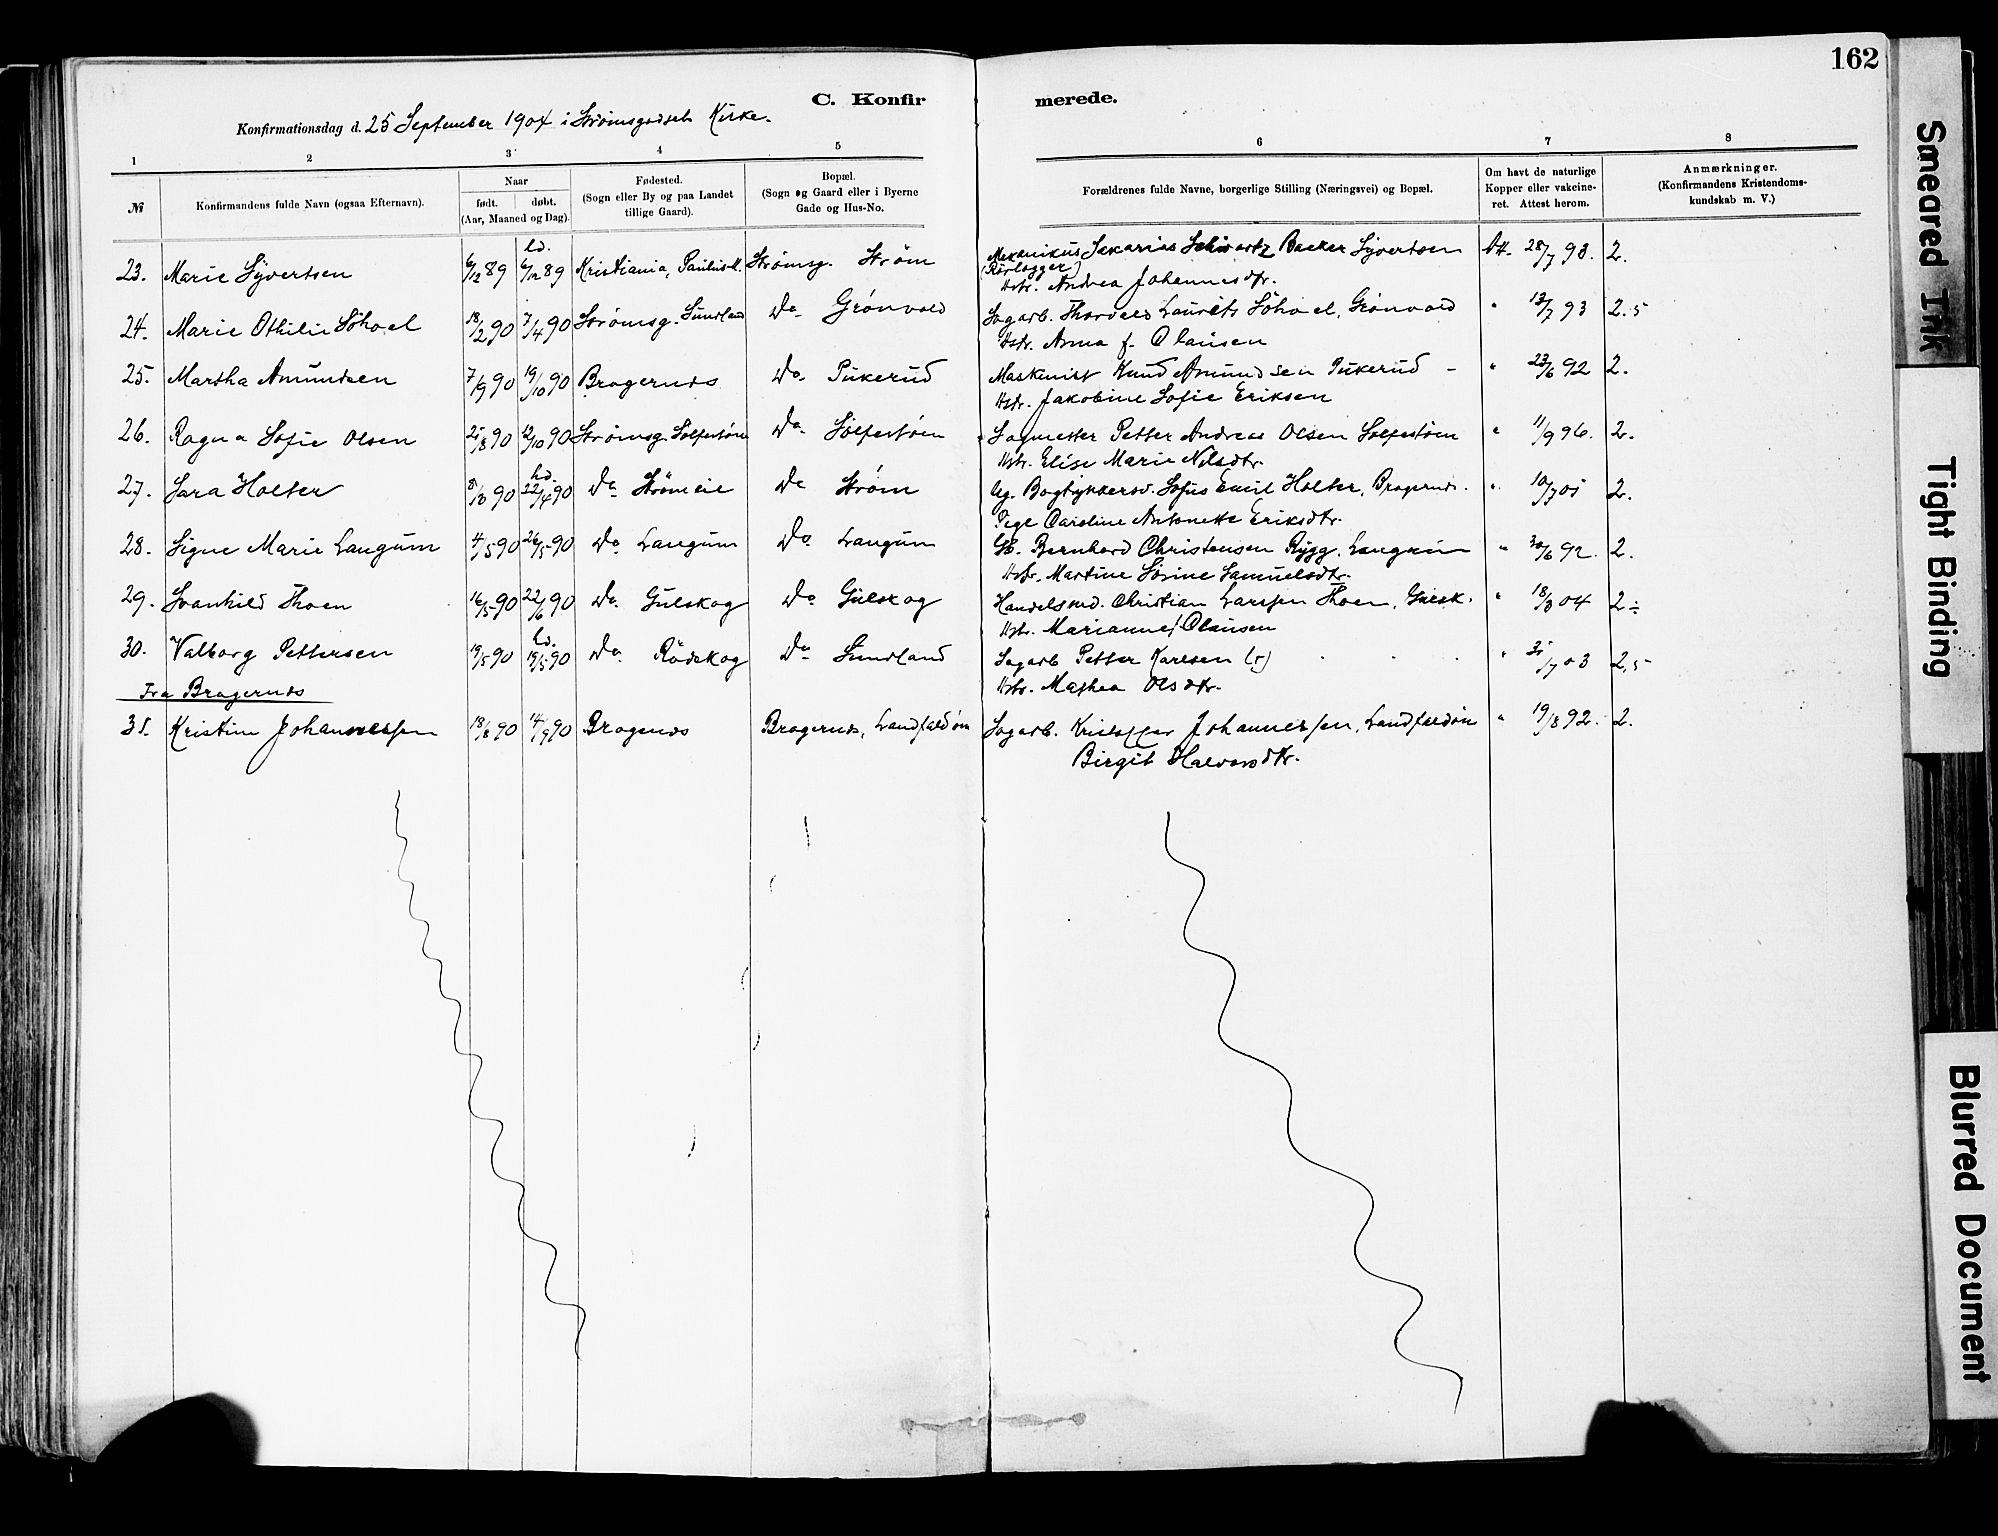 162
C. Konfirmerede.
Konfirmationsdag d. 25 September 1904 i Strømsgodset Kirke.
1 2 3 4 5 6 7 8
№ Konfirmandens fulde Navn (ogsaa Efternavn). Naar født. døbt. (Aar, Maaned og Dag). Fødested. (Sogn eller By og paa Landet tillige Gaard). Bopæl. (Sogn og Gaard eller i Byerne Gade og Hus-No. Forældrenes fulde Navne, borgerlige Stilling (Næringsvei) og Bopæl. Om havt de naturlige Kopper eller vakcineret. Attest herom. Anmærkninger. (Konfirmandens Kristendomskundskab m. V.)
23. Marie Syvertsen 6/12 89 hd. 6/12 89 Kristiania, Strømsg. Strøm Mekanikus Sakarias Schwartz Backer Syvertsen Att. 28/7 93. 2.
(Rørlægger) Hstr. Andrea Johannesdtr.
24. Marie Othilie Söhoel 18/2 90 7/4 90 Strømsg. Sundland Do Grønvold Sagarb. Laurits Söhoel, Grønvold " 13/7 93 2.5
Hstr. Anna f. Olausen
25. Martha Amundsen 7/9 90 19/10 90 Bragernæs Do Pukerud Maskinist Knud Amundsen Pukerud " 23/6 92 2.
Hstr. Jakobine Sofie Eriksen
26. Ragna Sofie Olsen 25/8 90 12/10 90 Strømsg. Do Sagmester Petter Andreas Olsen " 11/9 96. 2.
Hstr. Elise Marie Nilsdtr.
27. Sara Holter 90 hd. 22/4 90 Do Strömeie Do Strøm Ug. Sofus Emil Holter, Bragernæs. " 10/7 05 2.
Pige Caroline Antonette Eriksdtr.
28. Signe Marie Langum 4/5 90 26/5 90 Do Langum Do Langum Bernhard Christensen Rygg, Langum " 30/6 92. 2.
Hstr. Martine Sørine Samuelsdtr.
29. Svanhild Thoen 16/5 90 22/6 90 Do. Gulskog Do Gulskog Handelsmd. Christian Larssen Thoen, Gulsk. " 18/3 04 2÷
Hstr. Marianne f Olausen
30. Valborg Pettersen 19/5 90 hd. 19/5 90 Do. Rödskog Do Sundland Sagarb Petter Karlsen " /7 03 2,5
Hstr. Mathea Olsdtr.
Fra Bragernæs
31. Kristine Johannessen 18/8 90 14/9 90 Bragernæs Bragernæs, Landfaldøen Sagarb. Kristoffer Johannessen, Landfaldøn " 19/8 92. 2.
Birgit Halvorsdtr.
Smeared Ink
Tight Binding
Blurred Document